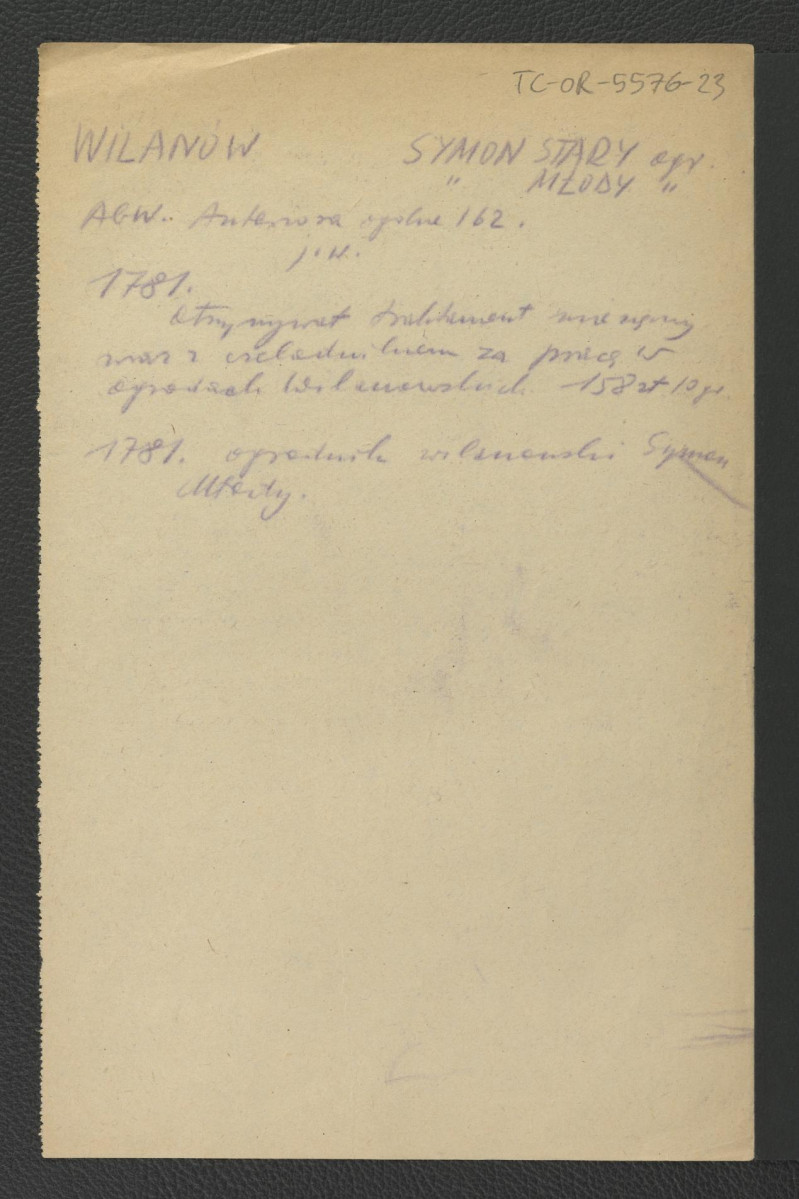 TC-OR-5576-23
WILANÓW SYMON STARY ogr.
" MŁODY "
AGW. Anteriora ogólne 162.
j.w.
1781.
Otrzymywał traktament miesięczny
wraz z czeladnikiem za pracę w
ogrodach Wilanowskich 158 zł 10 gr.
1781. ogrodnik wilanowski Symon
Młody.